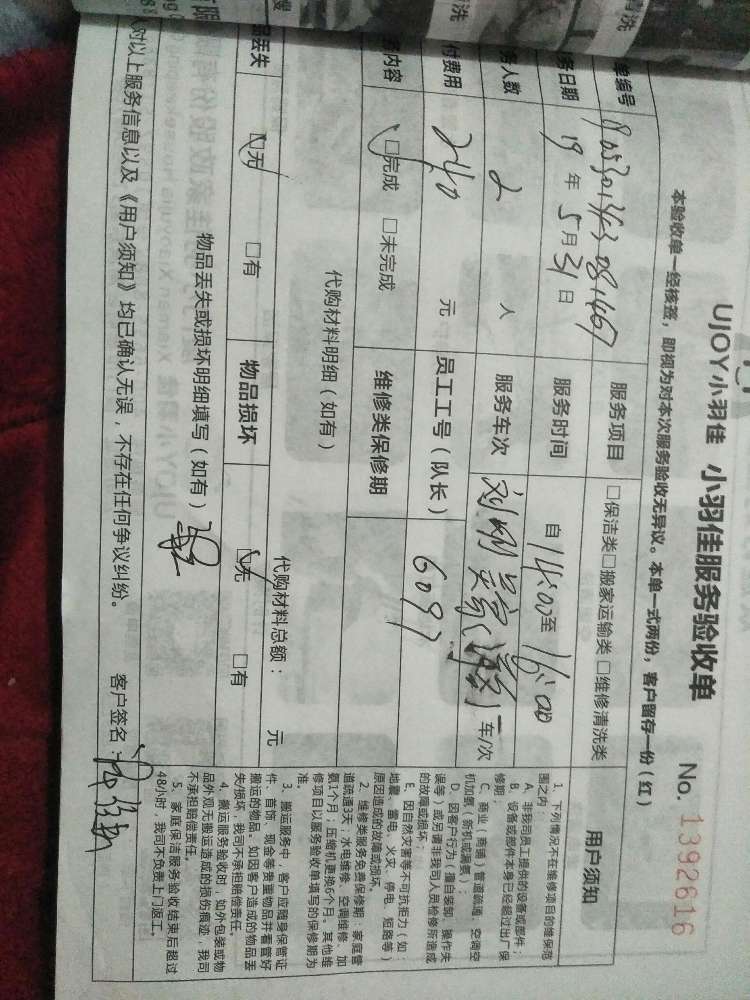 UJOY小羽佳 小羽佳服务验收单 No. 1392616
本验收单一经核签，即视为对本次服务验收无异议。本单一式两份，客户留存一份（红）
单编号
服务项目 □保洁类□搬家运输类 □维修清洗类
务日期 19年5月31日
服务时间 自14:00至16:00
务人数 2 人
服务车次 车/次
付费用 240 元
员工工号（队长） 6097
内容 □完成 □未完成
维修类保修期
代购材料明细（如有）
代购材料总额： 元
品丢失 □无 □有
物品损坏 □无 □有
物品丢失或损坏明细填写（如有）
对以上服务信息以及《用户须知》均已确认无误，不存在任何争议纠纷。 客户签名：
用户须知
1、下列情况不在维修项目的维保范
围之内：
A、非我司员工提供的设备或部件；
B、设备或部件本身已经超过出厂保
修期；
C、商业（商铺）管道疏通，空调空
机加氨（新机或漏氨）；
D、因客户行为（擅自装卸、操作失
误等）或另请非我司人员检修所造成
的故障或损坏；
E、因自然灾害等不可抗拒力（如：
地震、雷电、火灾、停电、短路等）
原因造成的故障或损坏。
2、维修类服务免费保修期：家庭管
道疏通3天；水电维修、空调维修、加
氨1个月；压缩机更换6个月。其他维
修项目以服务验收单填写的保修期为
准。
3、搬运服务中，客户应随身保管证
件、首饰、现金等贵重物品并看管好
搬运的物品。如因客户造成的物品丢
失/损坏，我司不承担赔偿责任。
4、搬运服务验收时，如外包装或物
品外观无搬运造成的损伤痕迹，我司
不承担赔偿责任。
5、家庭保洁服务验收结束后超过
48小时，我司不免费上门返工。